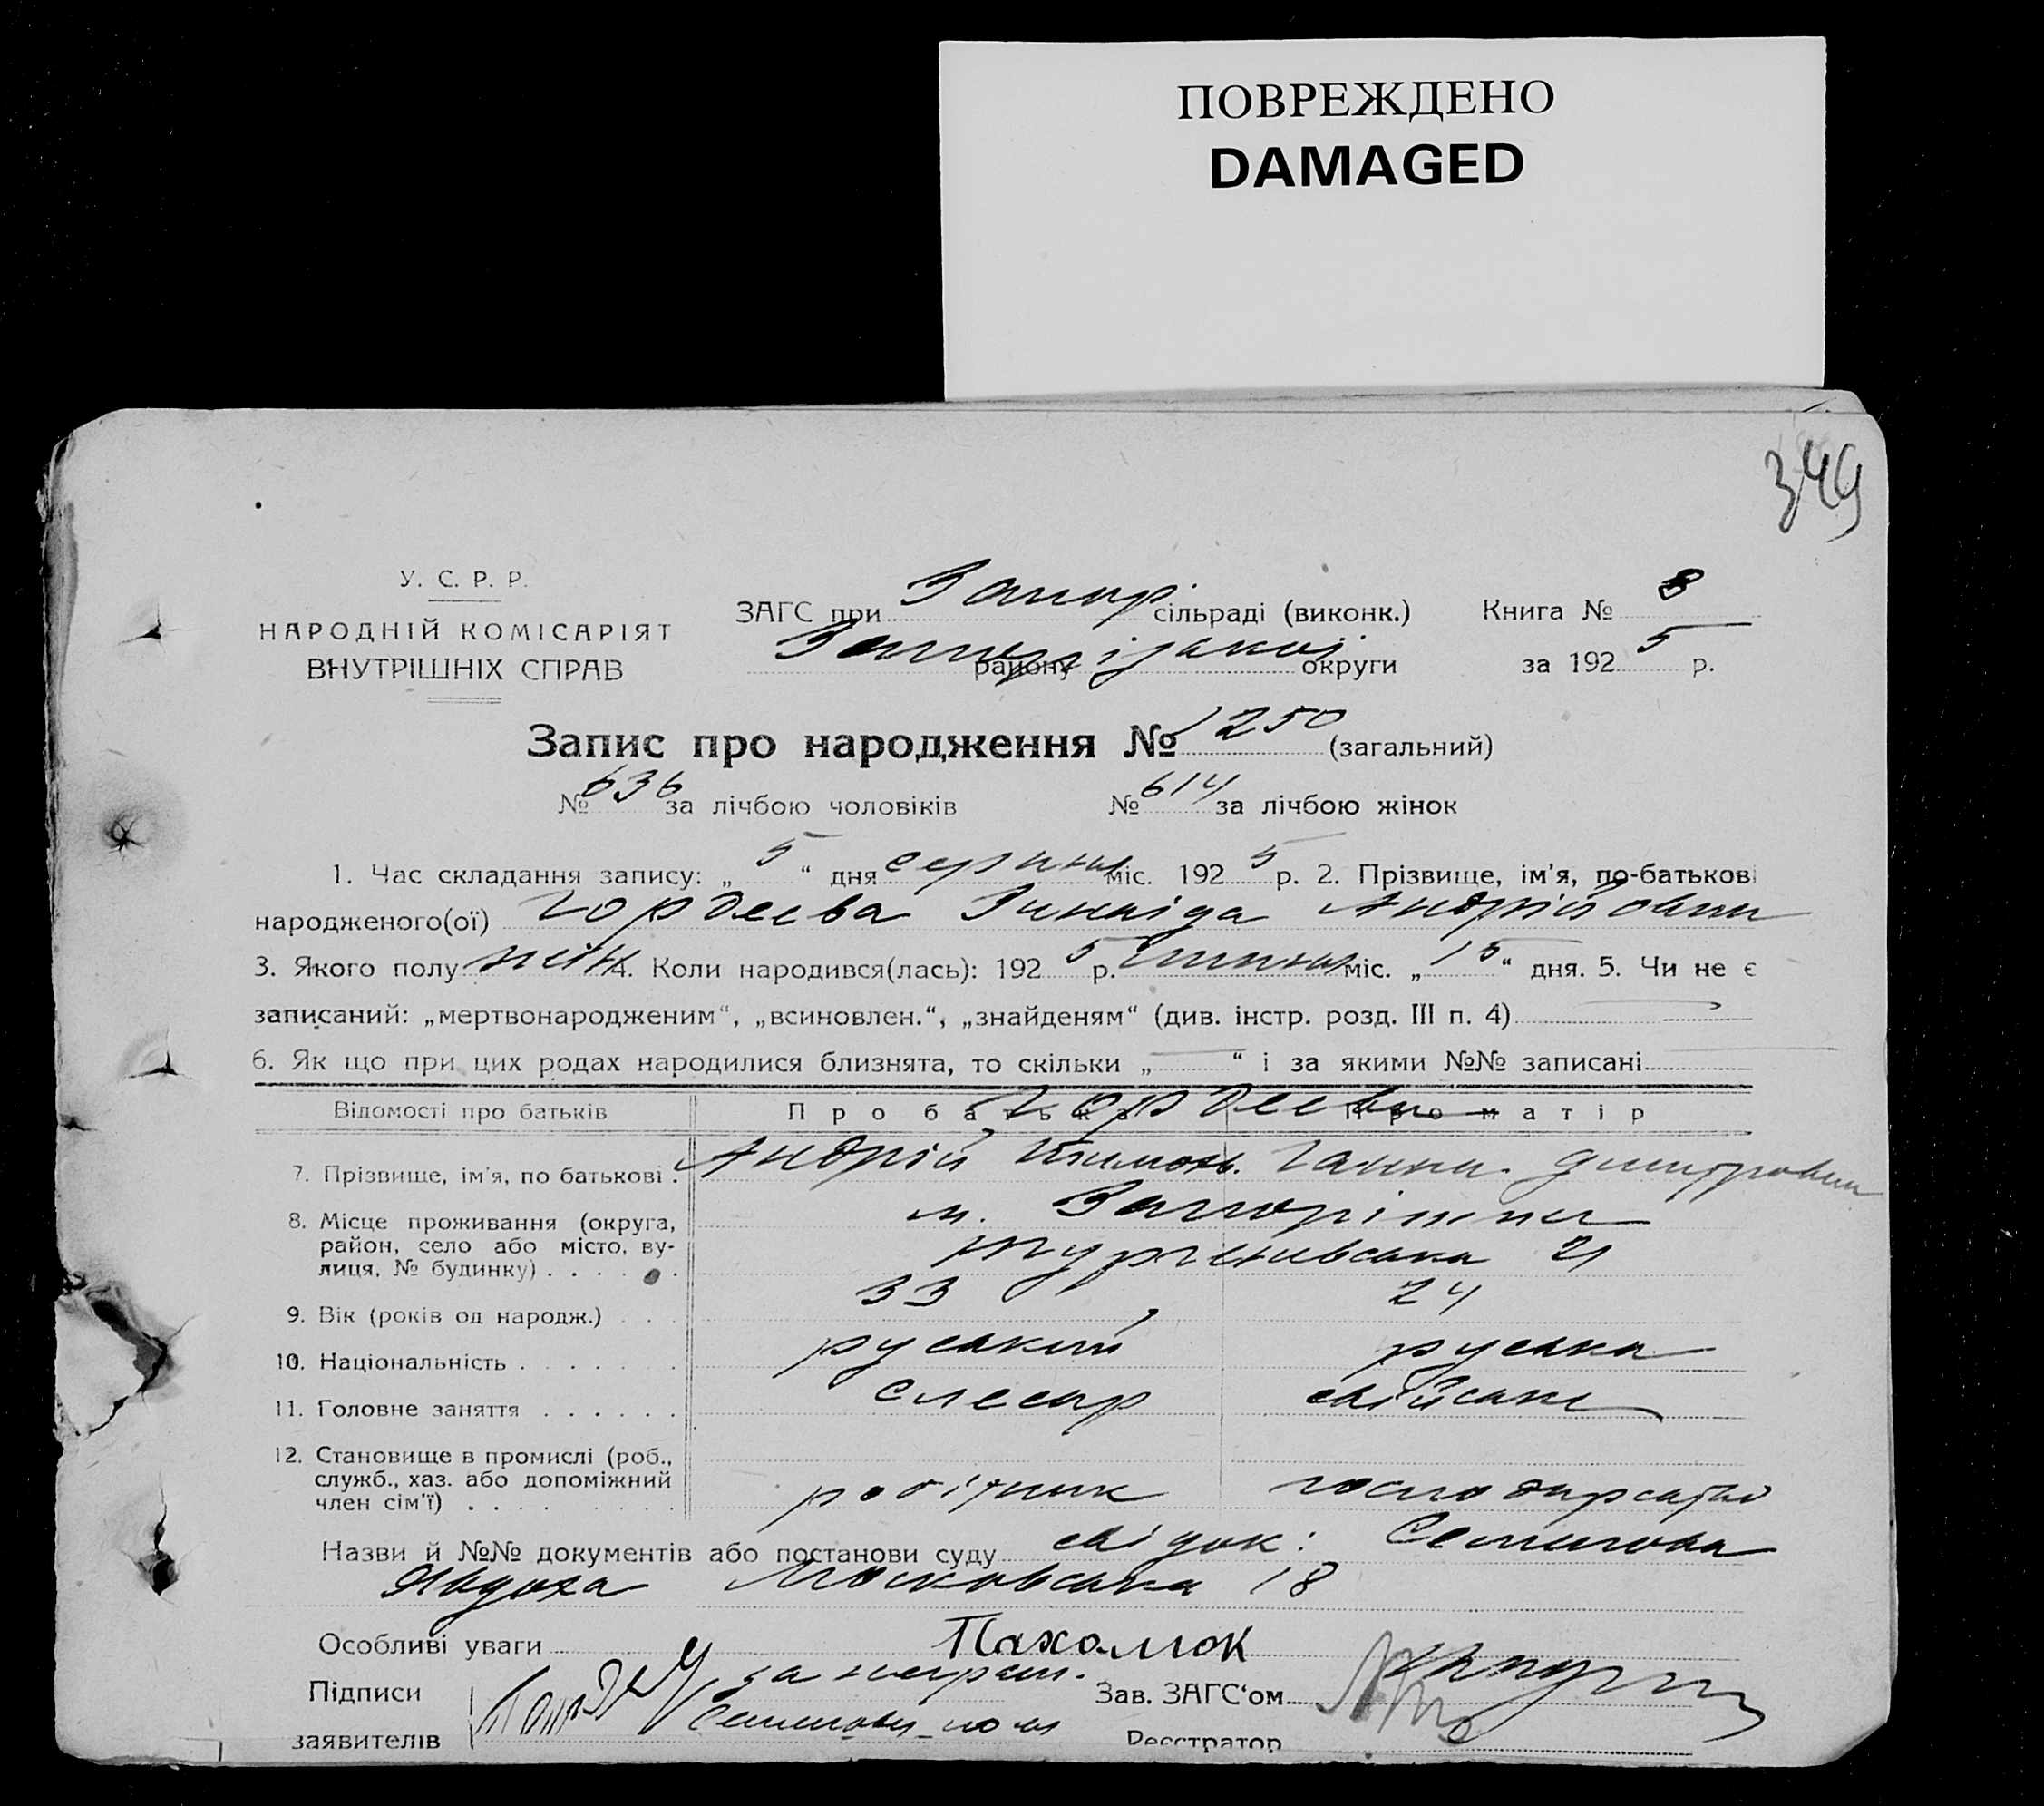 ПОВРЕЖДЕНО
DAMAGED
349
У. С. Р. Р.
НАРОДНІЙ КОМІСАРІЯТ
ВНУТРІШНІХ СПРАВ
ЗАГС при Запор. сільраді (виконк.) Книга № 8
району Запорізької округи за 192 5 р.
Запис про народження № 1250 (загальний)
№ 636 за лічбою чоловіків № 614 за лічбою жінок
1. Час складання запису: „ 5 “ дня серпня міс. 192 5 р. 2. Прізвище, ім’я, по-батькові
народженого(ої) Гордеева Зинаіда Андрійовна
3. Якого полу: жін. 4. Коли народився(лась): 192 5 р. липня міс. „ 15 “ дня. 5. Чи не є
записаний: „мертвонародженим“, „всиновлен.“, „знайденям“ (див. інстр. розд. III п. 4)
6. Як що при цих родах народилися близнята, то скільки „ “ і за якими №№ записані
Відомості про батьків Про батька Про матір
Гордееви
7. Прізвище, ім’я, по батькові . Андрій Ганна
8. Місце проживання (округа, м. Запоріжжя
район, село або місто, ву- Тургенівська 21
лиця, № будинку) . . . . . .
9. Вік (років од народж.) . . . 33 24
10. Національність . . . . . . . руський руська
11. Головне заняття . . . . . . слесар
12. Становище в промислі (роб.,
служб., хаз. або допоміжний
член сім’ї) . . . . робітник
Назви й №№ документів або постанови суду свідок:
Явдоха Московська 18
Особливі уваги Пахолюк
Підписи за неграм. Зав. ЗАГС‘ом
заявителів Реєстратор